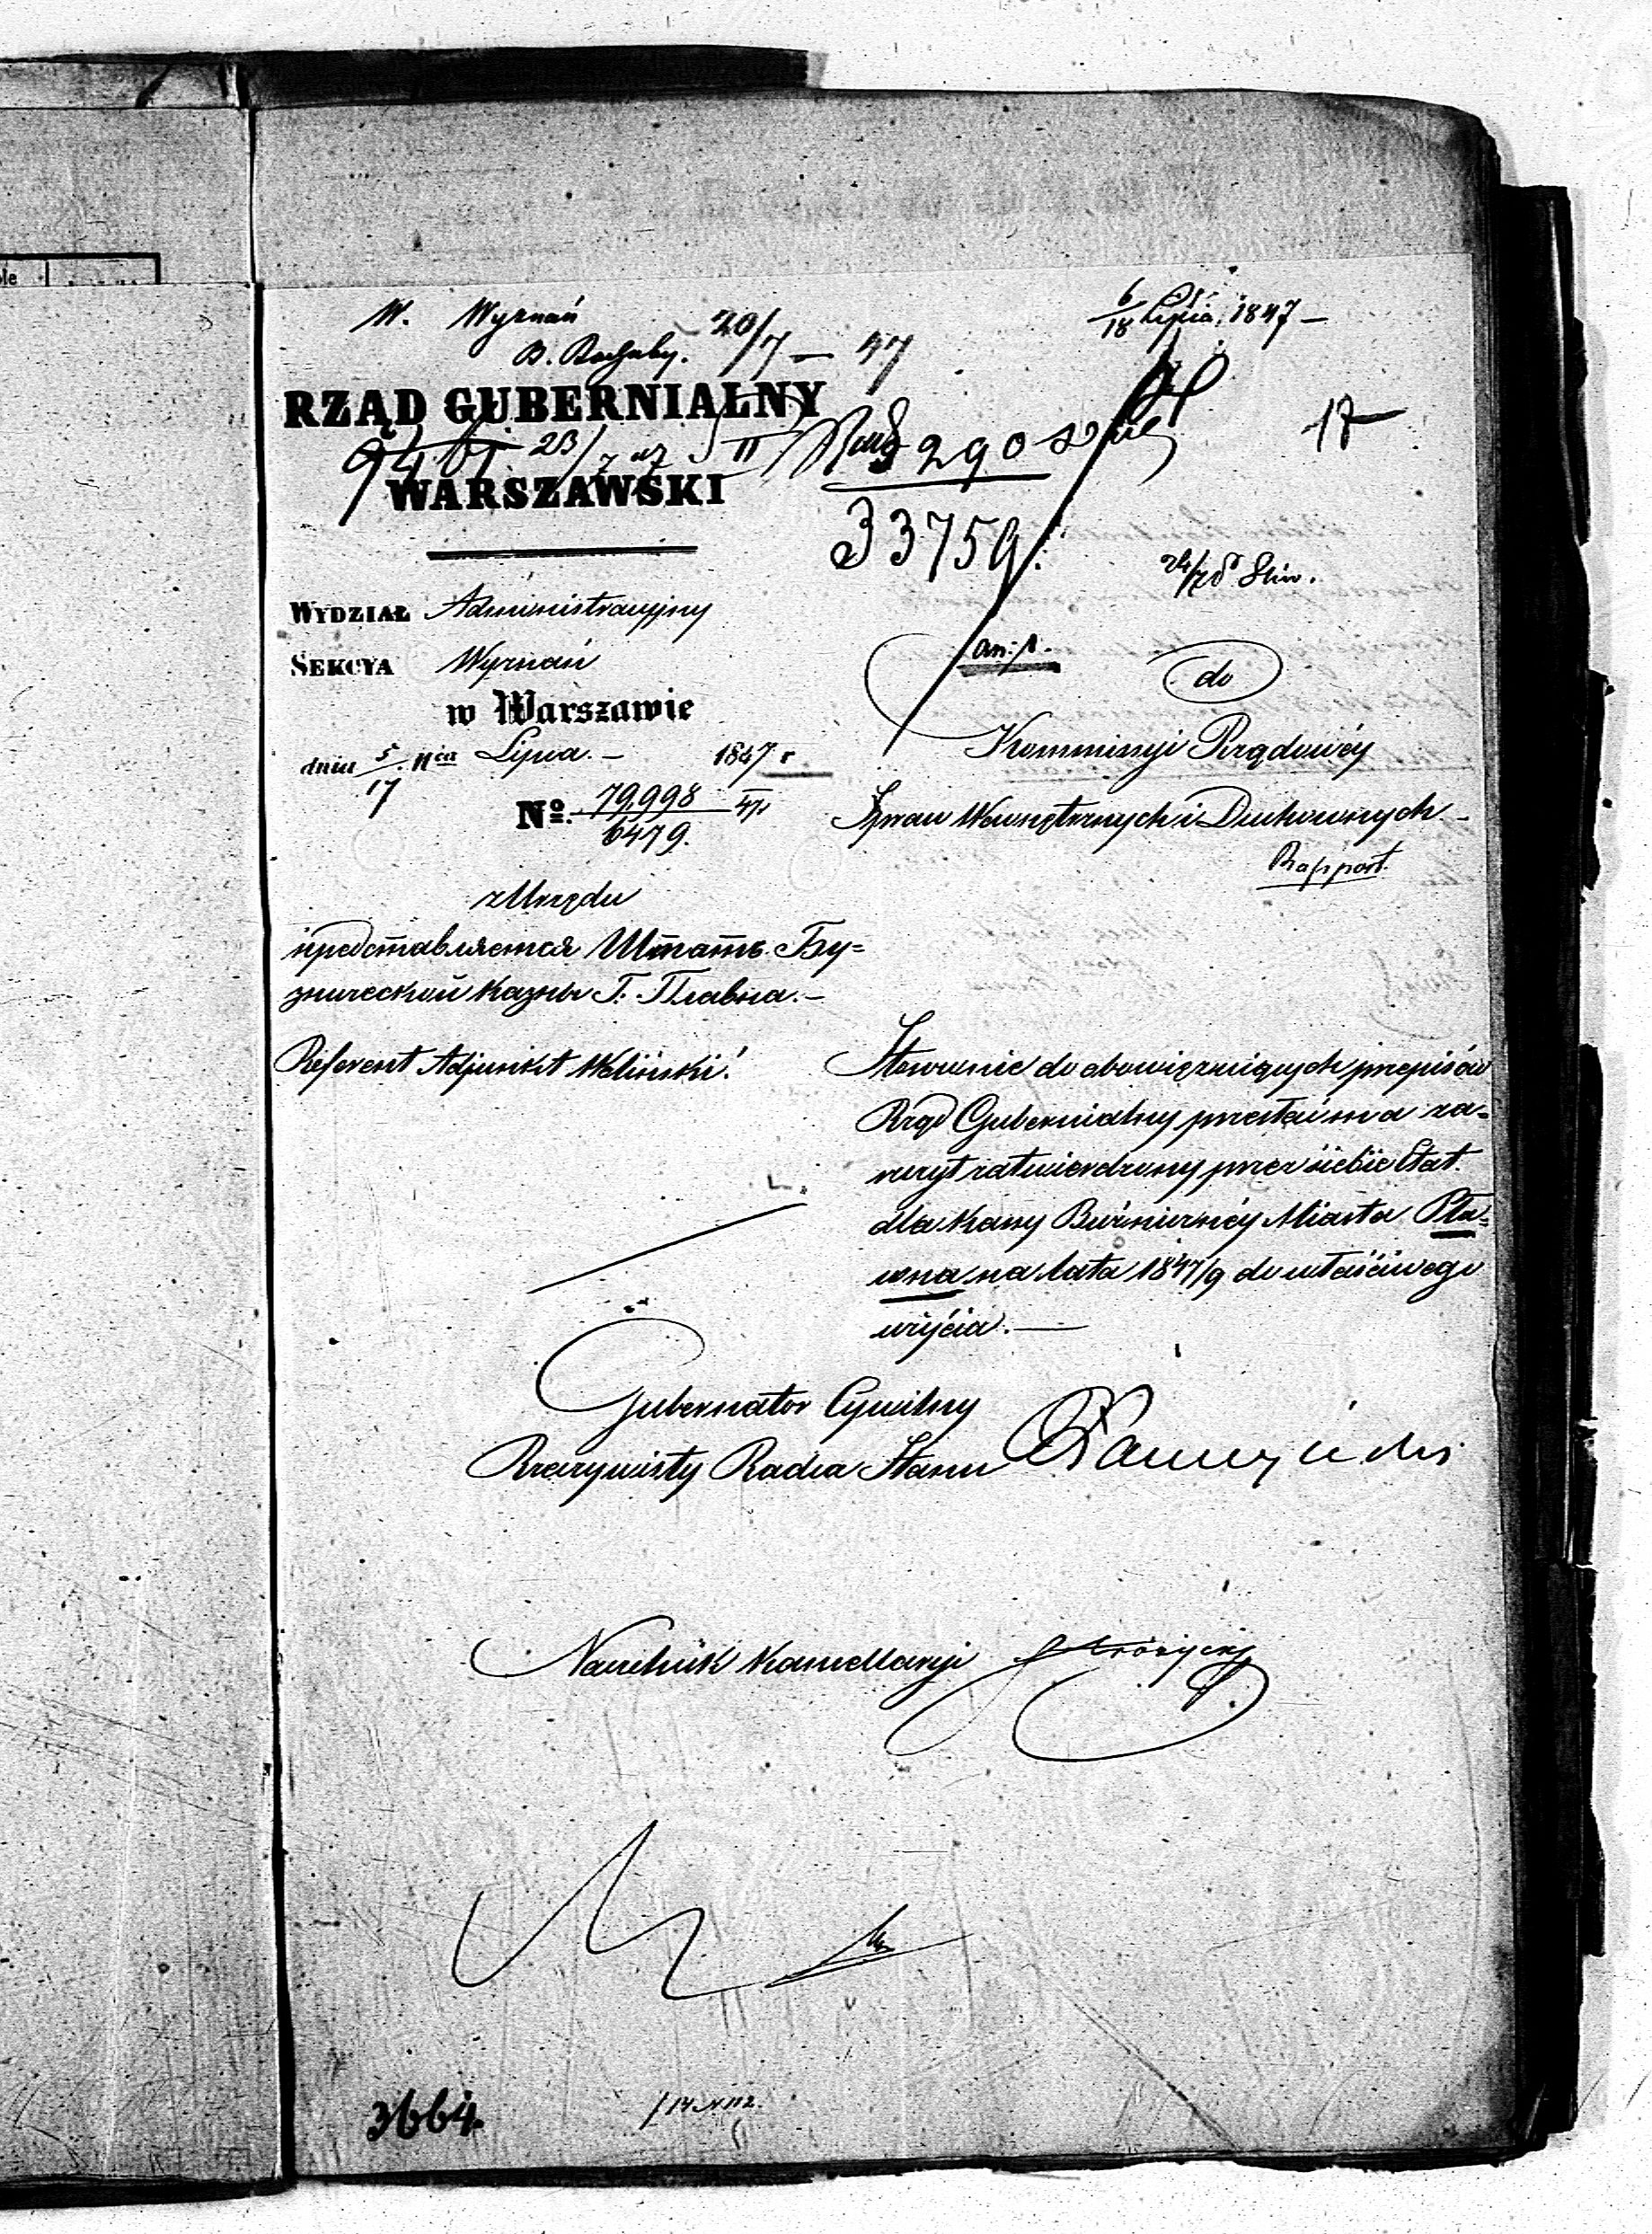 W. Wyznań
20/7 — 47
6/18 Lipca 1847 —
RZĄD GUBERNIALNY
WARSZAWSKI
17
23/7 47 II
290
33759
24/7
WYDZIAŁ Administracyjny
SEKCYA Wyznań
w Warszawie
dnia 5/17 Mca Lipca. — 1847 r
No. 79,998/6479. 47
an: 1.
do
Kommissyi Rządowéy
Spraw Wewnętrznych i Duchownych —
Rapport.
z Urzędu
представляется Штатъ Бу=
жнической кассы Г. Плавна. —
Referent Adjunkt Woliński
Stosownie do obowiązuiących przepisów
Rząd Gubernialny przesłać ma za=
szczyt zatwierdzony przez siebie Etat
dla Kassy Bużniczéy Miasta Pła=
wna na lata 1847/9 do właściwego
użycia. —
Gubernator Cywilny
Rzeczywisty Radca Stanu
Naczelnik Kancellaryi
3664.